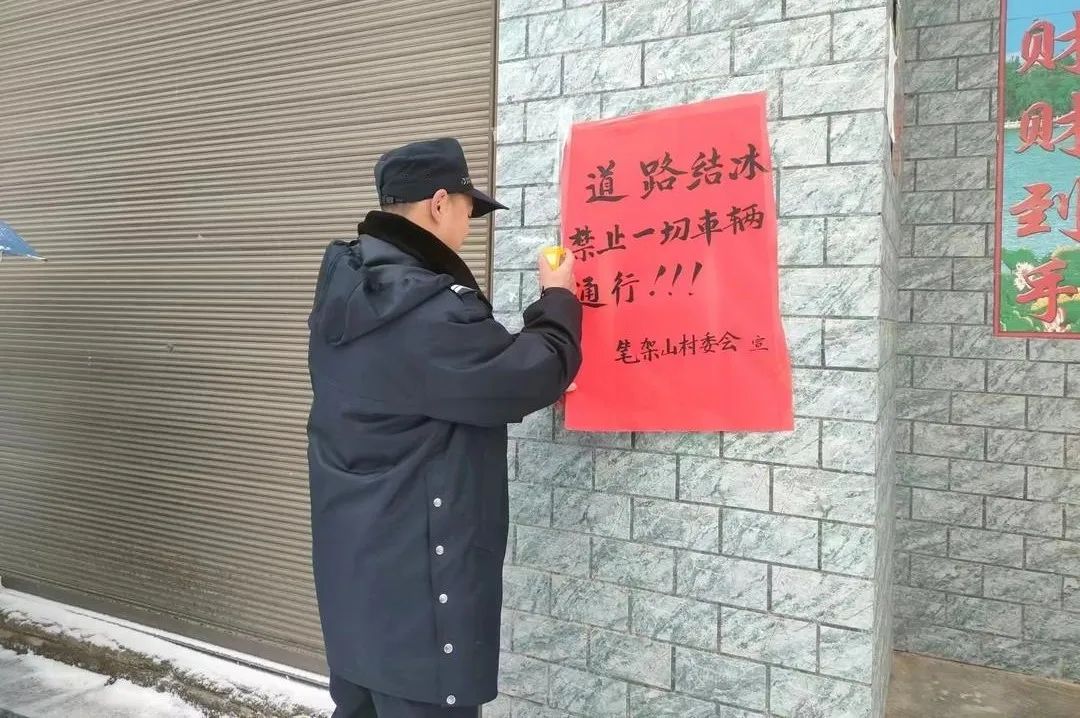 道路结冰
禁止一切车辆
通行!!!
笔架山村委会 宣
财
财
到
手